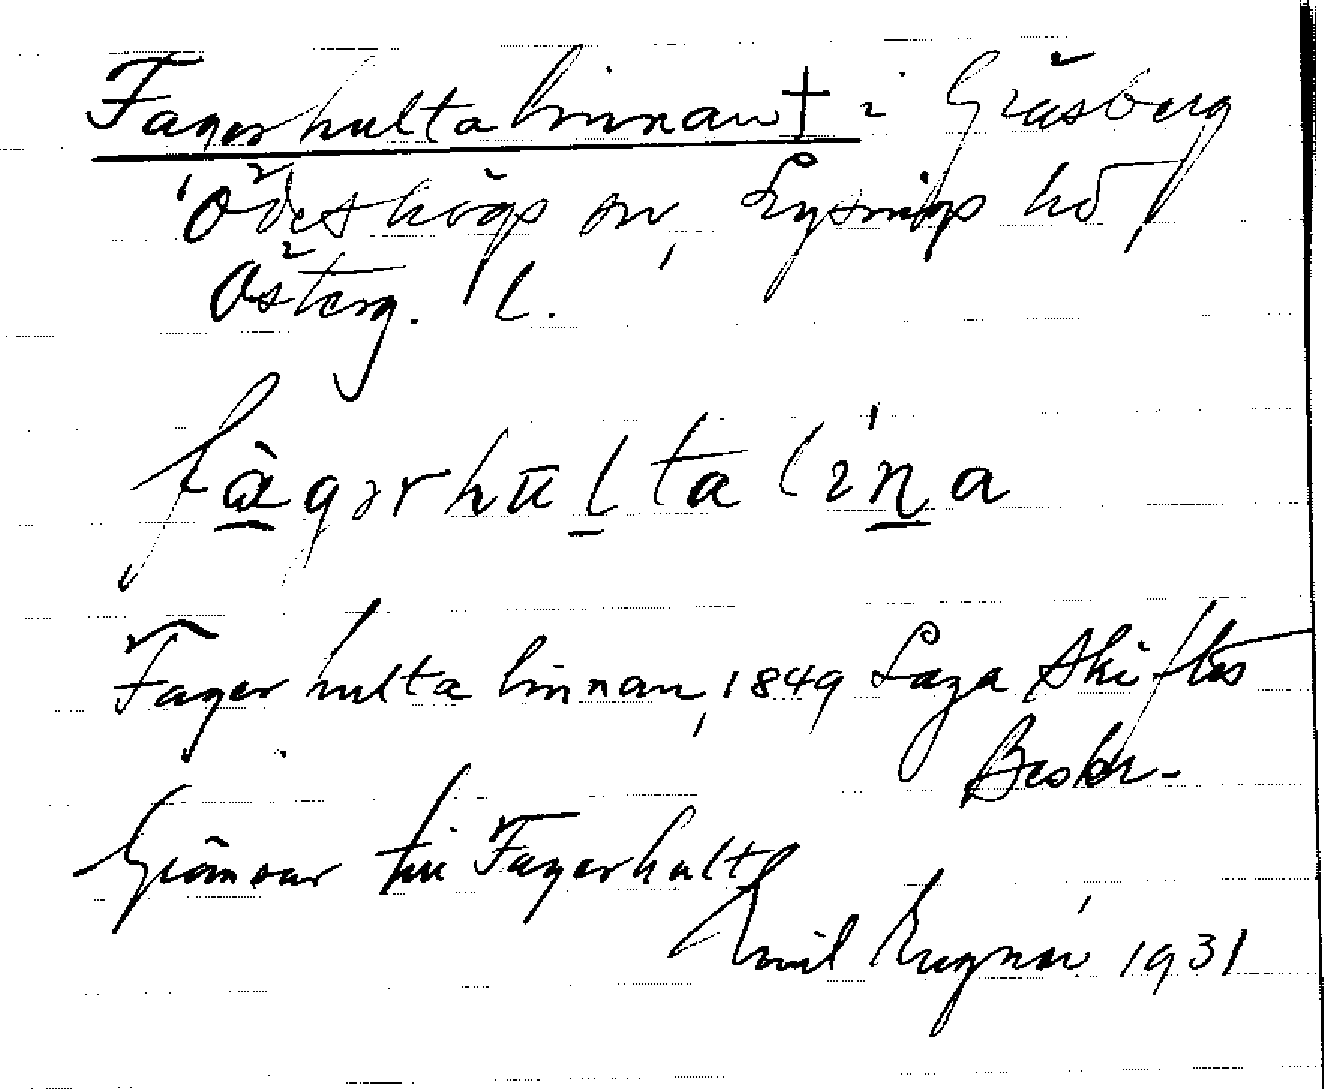 Fagerhultalinnan † i Gräsberg
Ödeshögs sn, Lysings hd
Österg. l.
fàgərhūltalına
Fagerhultalinnan, 1849 Laga Skiftes
Beskr.
Gränsar till Fagerhult
Emil 1931